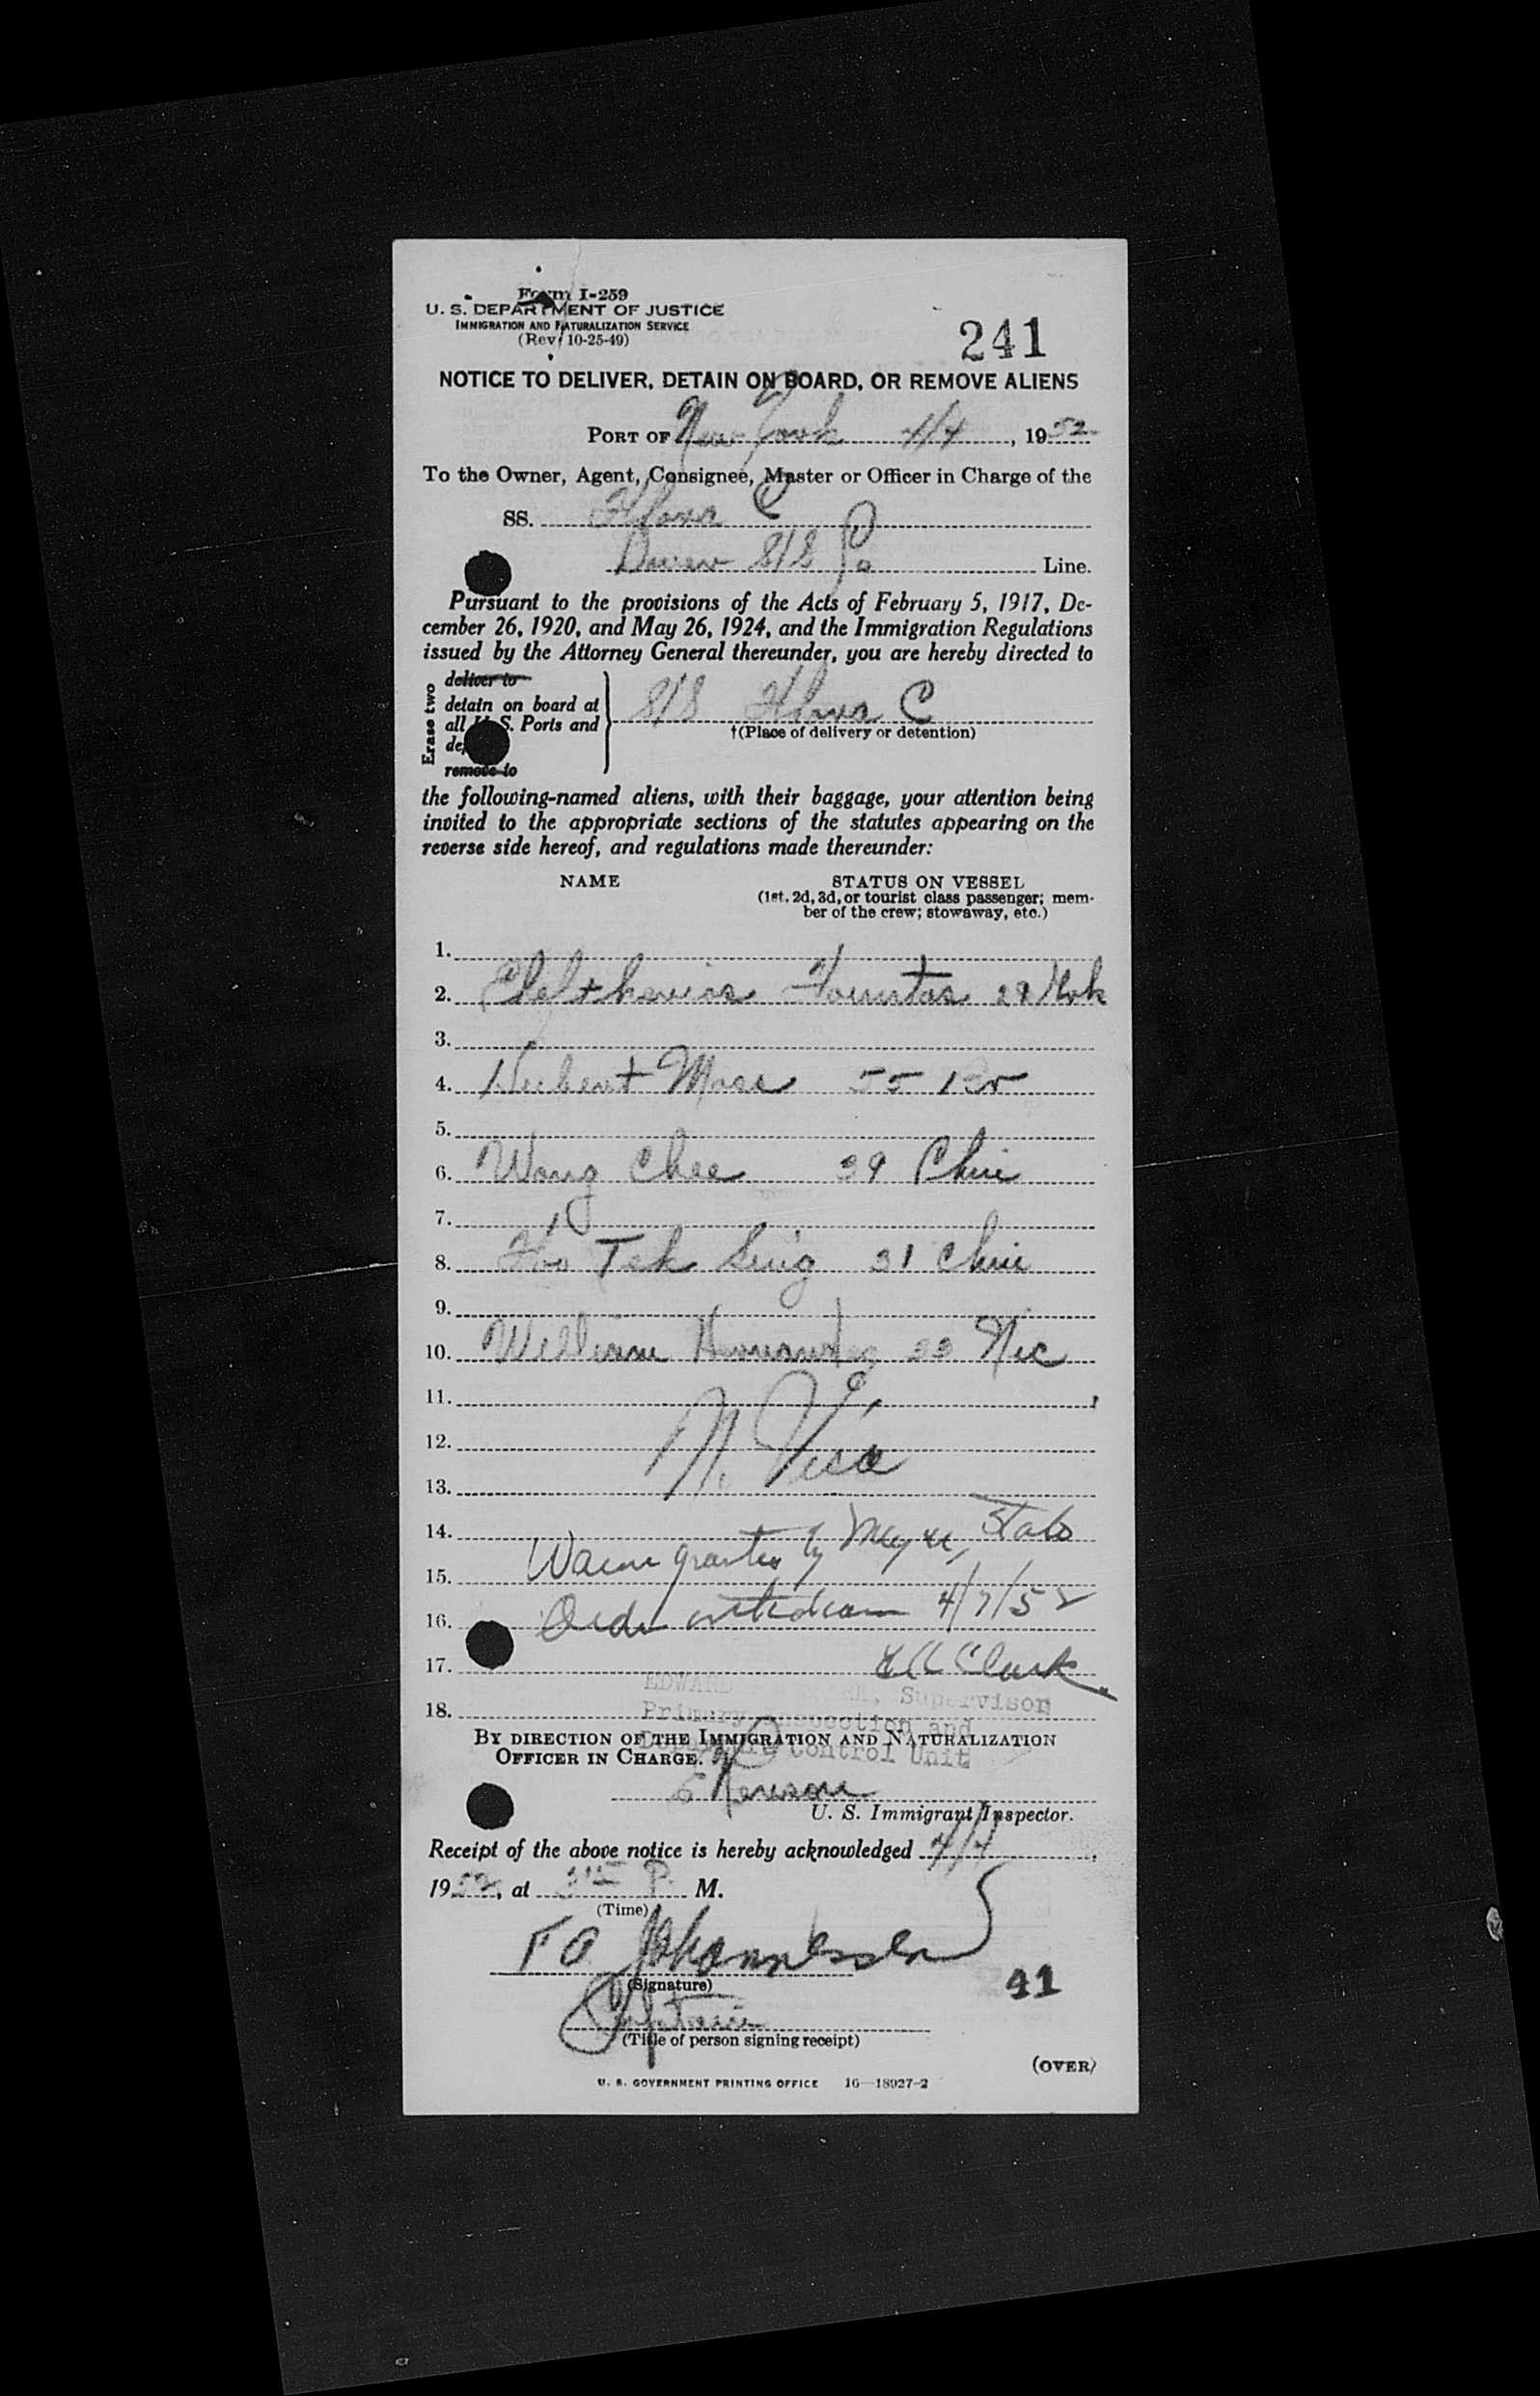 Form I-259
U. S. DEPARTMENT OF JUSTICE
IMMIGRATION AND NATURALIZATION SERVICE
(Rev. 10-25-49)
241
NOTICE TO DELIVER, DETAIN ON BOARD, OR REMOVE ALIENS
PORT OF New York 4/4, 1952
To the Owner, Agent, Consignee, Master or Officer in Charge of the
SS. Flora C
S/S Co Line.
Pursuant to the provisions of the Acts of February 5, 1917, De-
cember 26, 1920, and May 26, 1924, and the Immigration Regulations
issued by the Attorney General thereunder, you are hereby directed to
Erase two
deliver to
detain on board at
all U. S. Ports and
remove to
S/S Flora C
†(Place of delivery or detention)
the following-named aliens, with their baggage, your attention being
invited to the appropriate sections of the statutes appearing on the
reverse side hereof, and regulations made thereunder:
NAME STATUS ON VESSEL
(1st, 2d, 3d, or tourist class passenger; mem-
ber of the crew; stowaway, etc.)
1.
2. 29
3.
4. Hubert 55 Br
5.
6. Wong Chee 39 Chin
7.
8. Ho Tek Sing 31 Chin
9.
10. William Hernandez 33 Nic
11.
12.
13. N. Visa
14.
15. granted by State
16. Order withdrawn 4/7/52
17. Clark
EDWARD Supervisor
18. Primary Inspection and
Control Unit
BY DIRECTION OF THE IMMIGRATION AND NATURALIZATION
OFFICER IN CHARGE.
U. S. Immigrant Inspector.
Receipt of the above notice is hereby acknowledged 4/4,
1952, at P. M.
(Time)
F O Johannessen
(Signature)
41
Captain
(Title of person signing receipt)
(OVER)
U. S. GOVERNMENT PRINTING OFFICE 16—18927-2